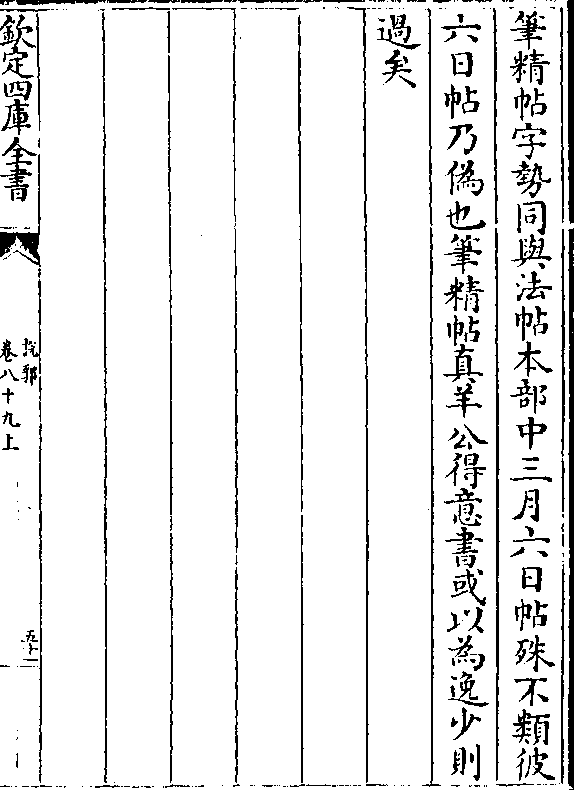 筆精帖字勢同與法帖本部中三月六日帖殊不類彼
六日帖乃偽也筆精帖真羊公得意書或以為逸少則
過矣
欽定四庫全書
說郛
卷八十九上
五十一